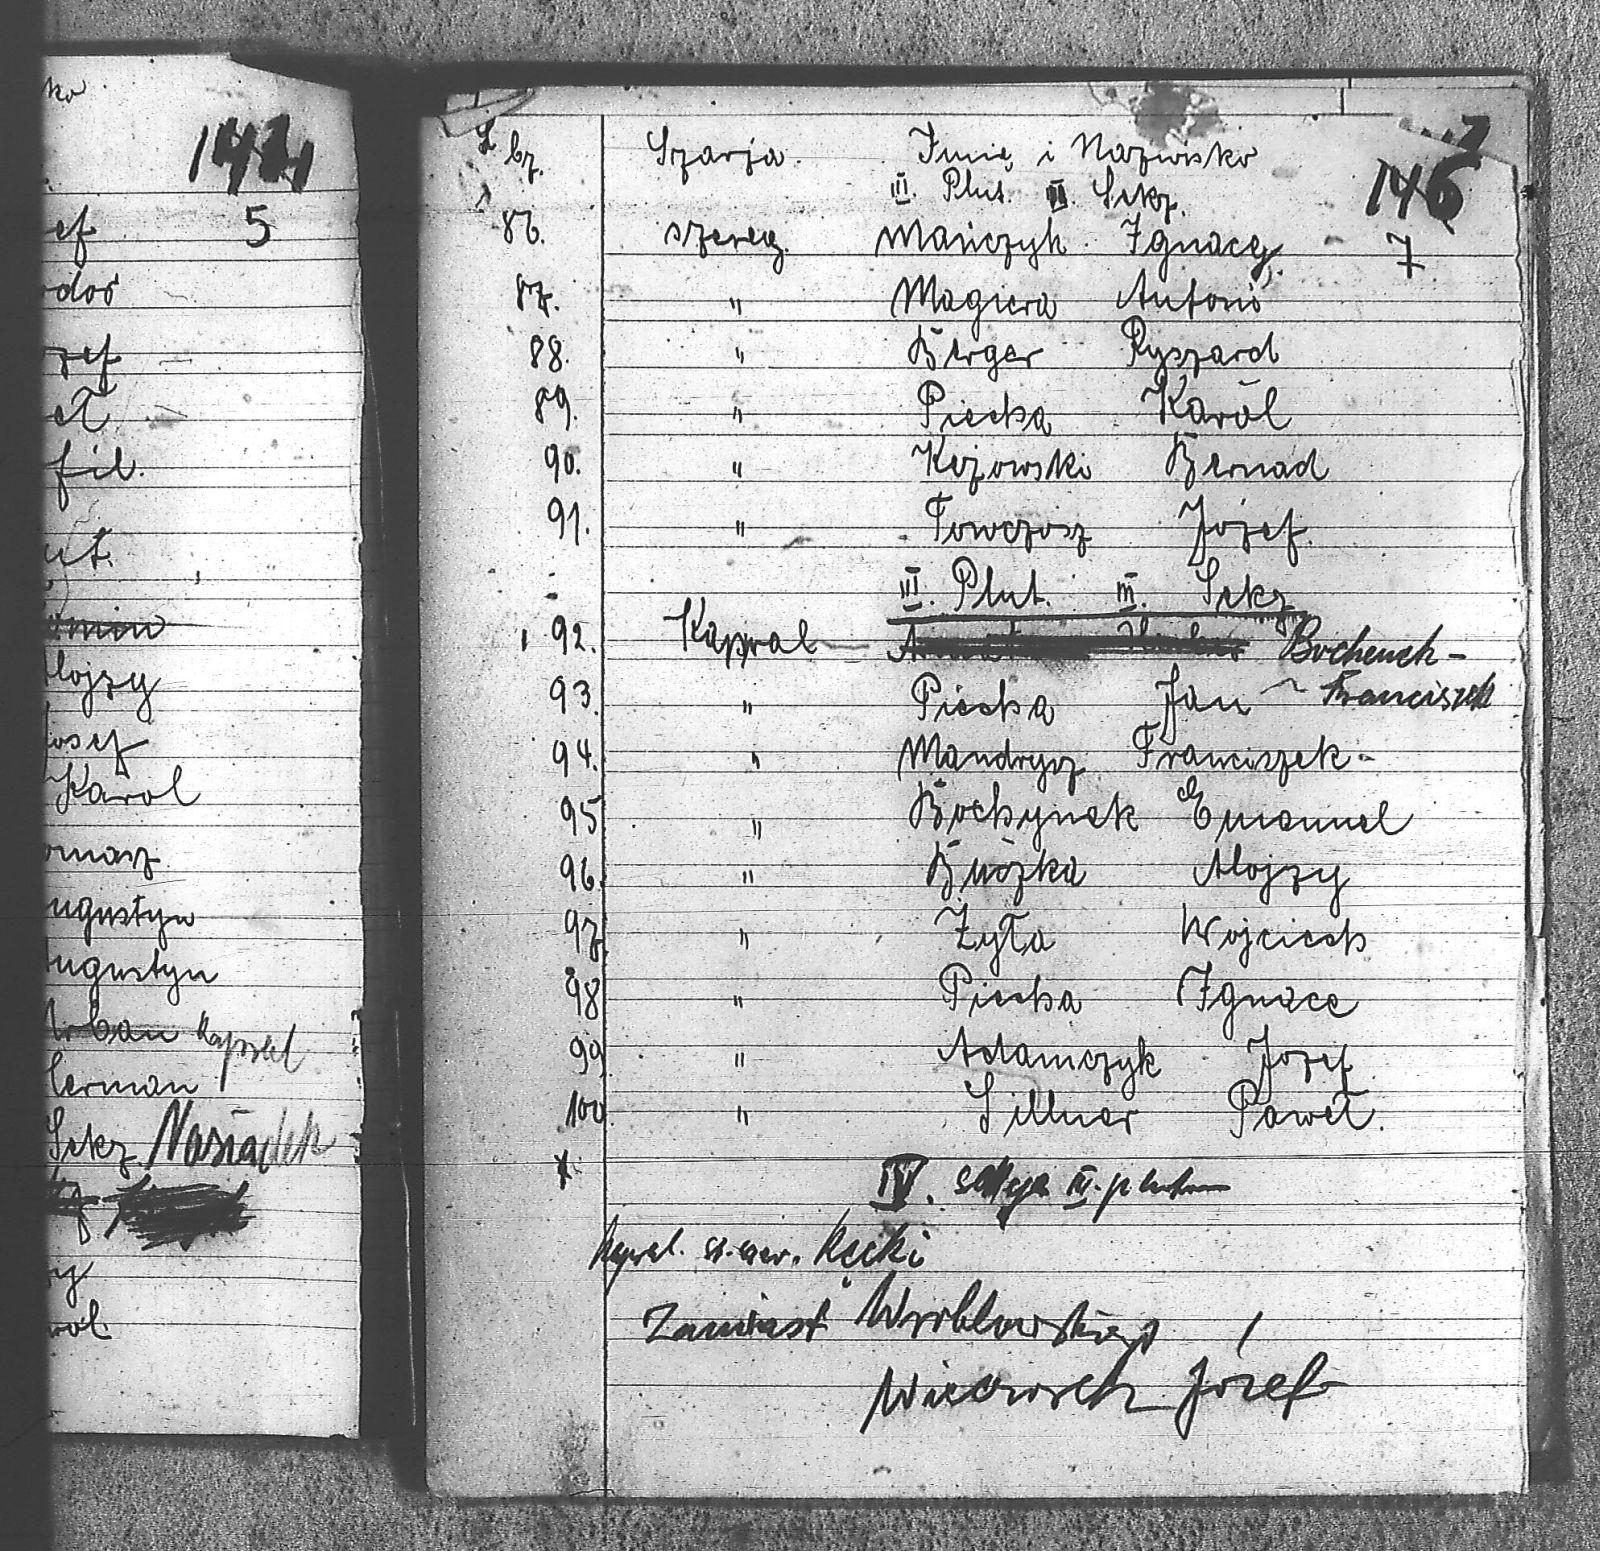 142
5
ef
dor
zef
eł
fil.
ut.
lojzy
osef
Karol
omasz
ugustyn
ugustyn
Urban Kapral
German
Sekz. Nasiadek
ol.
L. bz. Szarja. Imię i Nazwisko
III. Plut. II. Sekz.
146
7
86. szereg. Mańczyk Ignacy
87. " Magiera Antoni
88. " Berger Ryszard
89. " Piecha Karol
90. " Kozowski Bernad
91. " Towczosz Józef.
III. Plut. III. Sekz.
92. Kapral Bochenek -
Franciszek
93. " Piecha Jan
94. " Mandrysz Franciszek
95 " Bochynek Emanuel
96. " Buożka Alojzy
97. " Żyła Wojciech
98 " Piecha Ignace
99 " Adamczyk Jozef
100 " Sillner Paweł.
IV. sekcja III. pluton
Kapral. Kęcki
Zamiast Wróblowskiego
Wieczorek Józef